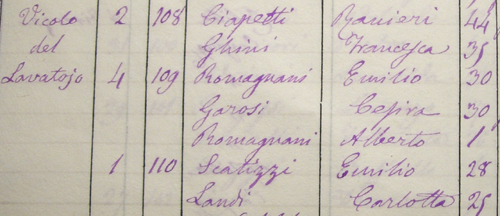 Vicolo 2 108 Ciapetti Ranieri 44
del Ghini Francesca 35
Lavatojo 4 109 Romagnani Emilio 30
Garosi Cesira 30
Romagnani Alberto 1
1 110 Scatizzi Emilio 28
Landi Carlotta 25